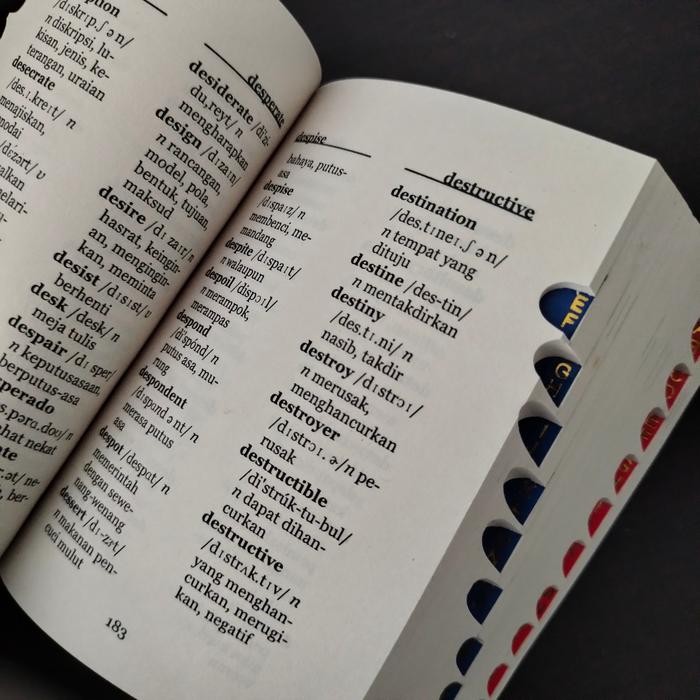 /dɪskrɪp.ʃən/
n diskripsi, lu-
kisan, jenis, ke-
terangan, uraian
desecrate
/des.ɪ.kreɪt/ n
menajiskan,
desperate
desiderate /di'zi-
du,reyt/ n
mengharapkan
design /dɪzaɪn/
n rancangan,
model, pola,
bentuk, tujuan,
maksud
desire /dɪzaɪr/ n
hasrat, keingin-
an, mengingin-
kan, meminta
desist /dɪsɪst/ v
berhenti
desk /desk/ n
meja tulis
despair /dɪsper/
n keputusasaan,
berputus-asa
despise
bahaya, putus-
asa
despise
/dɪspaɪz/ n
membenci, me-
mandang
despite /dɪspaɪt/
n walaupun
despoil /dispɔɪl/
n merampok,
merampas
despond
/di'spónd/ n
putus asa, mu-
rung
despondent
/dɪspɒndənt/ n
merasa putus
asa
despot /despɑt/ n
memerintah
dengan sewe-
nang-wenang
dessert /dɪ-zɜt/
n makanan pen-
cuci mulut
183
destructive
destination
/des.tɪneɪ.ʃən/
n tempat yang
dituju
destine /des-tin/
n mentakdirkan
destiny
/des.tɪ.ni/ n
nasib, takdir
destroy /dɪstrɔɪ/
n merusak,
menghancurkan
destroyer
/dɪstrɔɪ.ə/n pe-
rusak
destructible
/di'strúk-tu-bul/
n dapat dihan-
curkan
destructive
/dɪstrʌk.tɪv/ n
yang menghan-
curkan, merugi-
kan, negatif
EF
GH